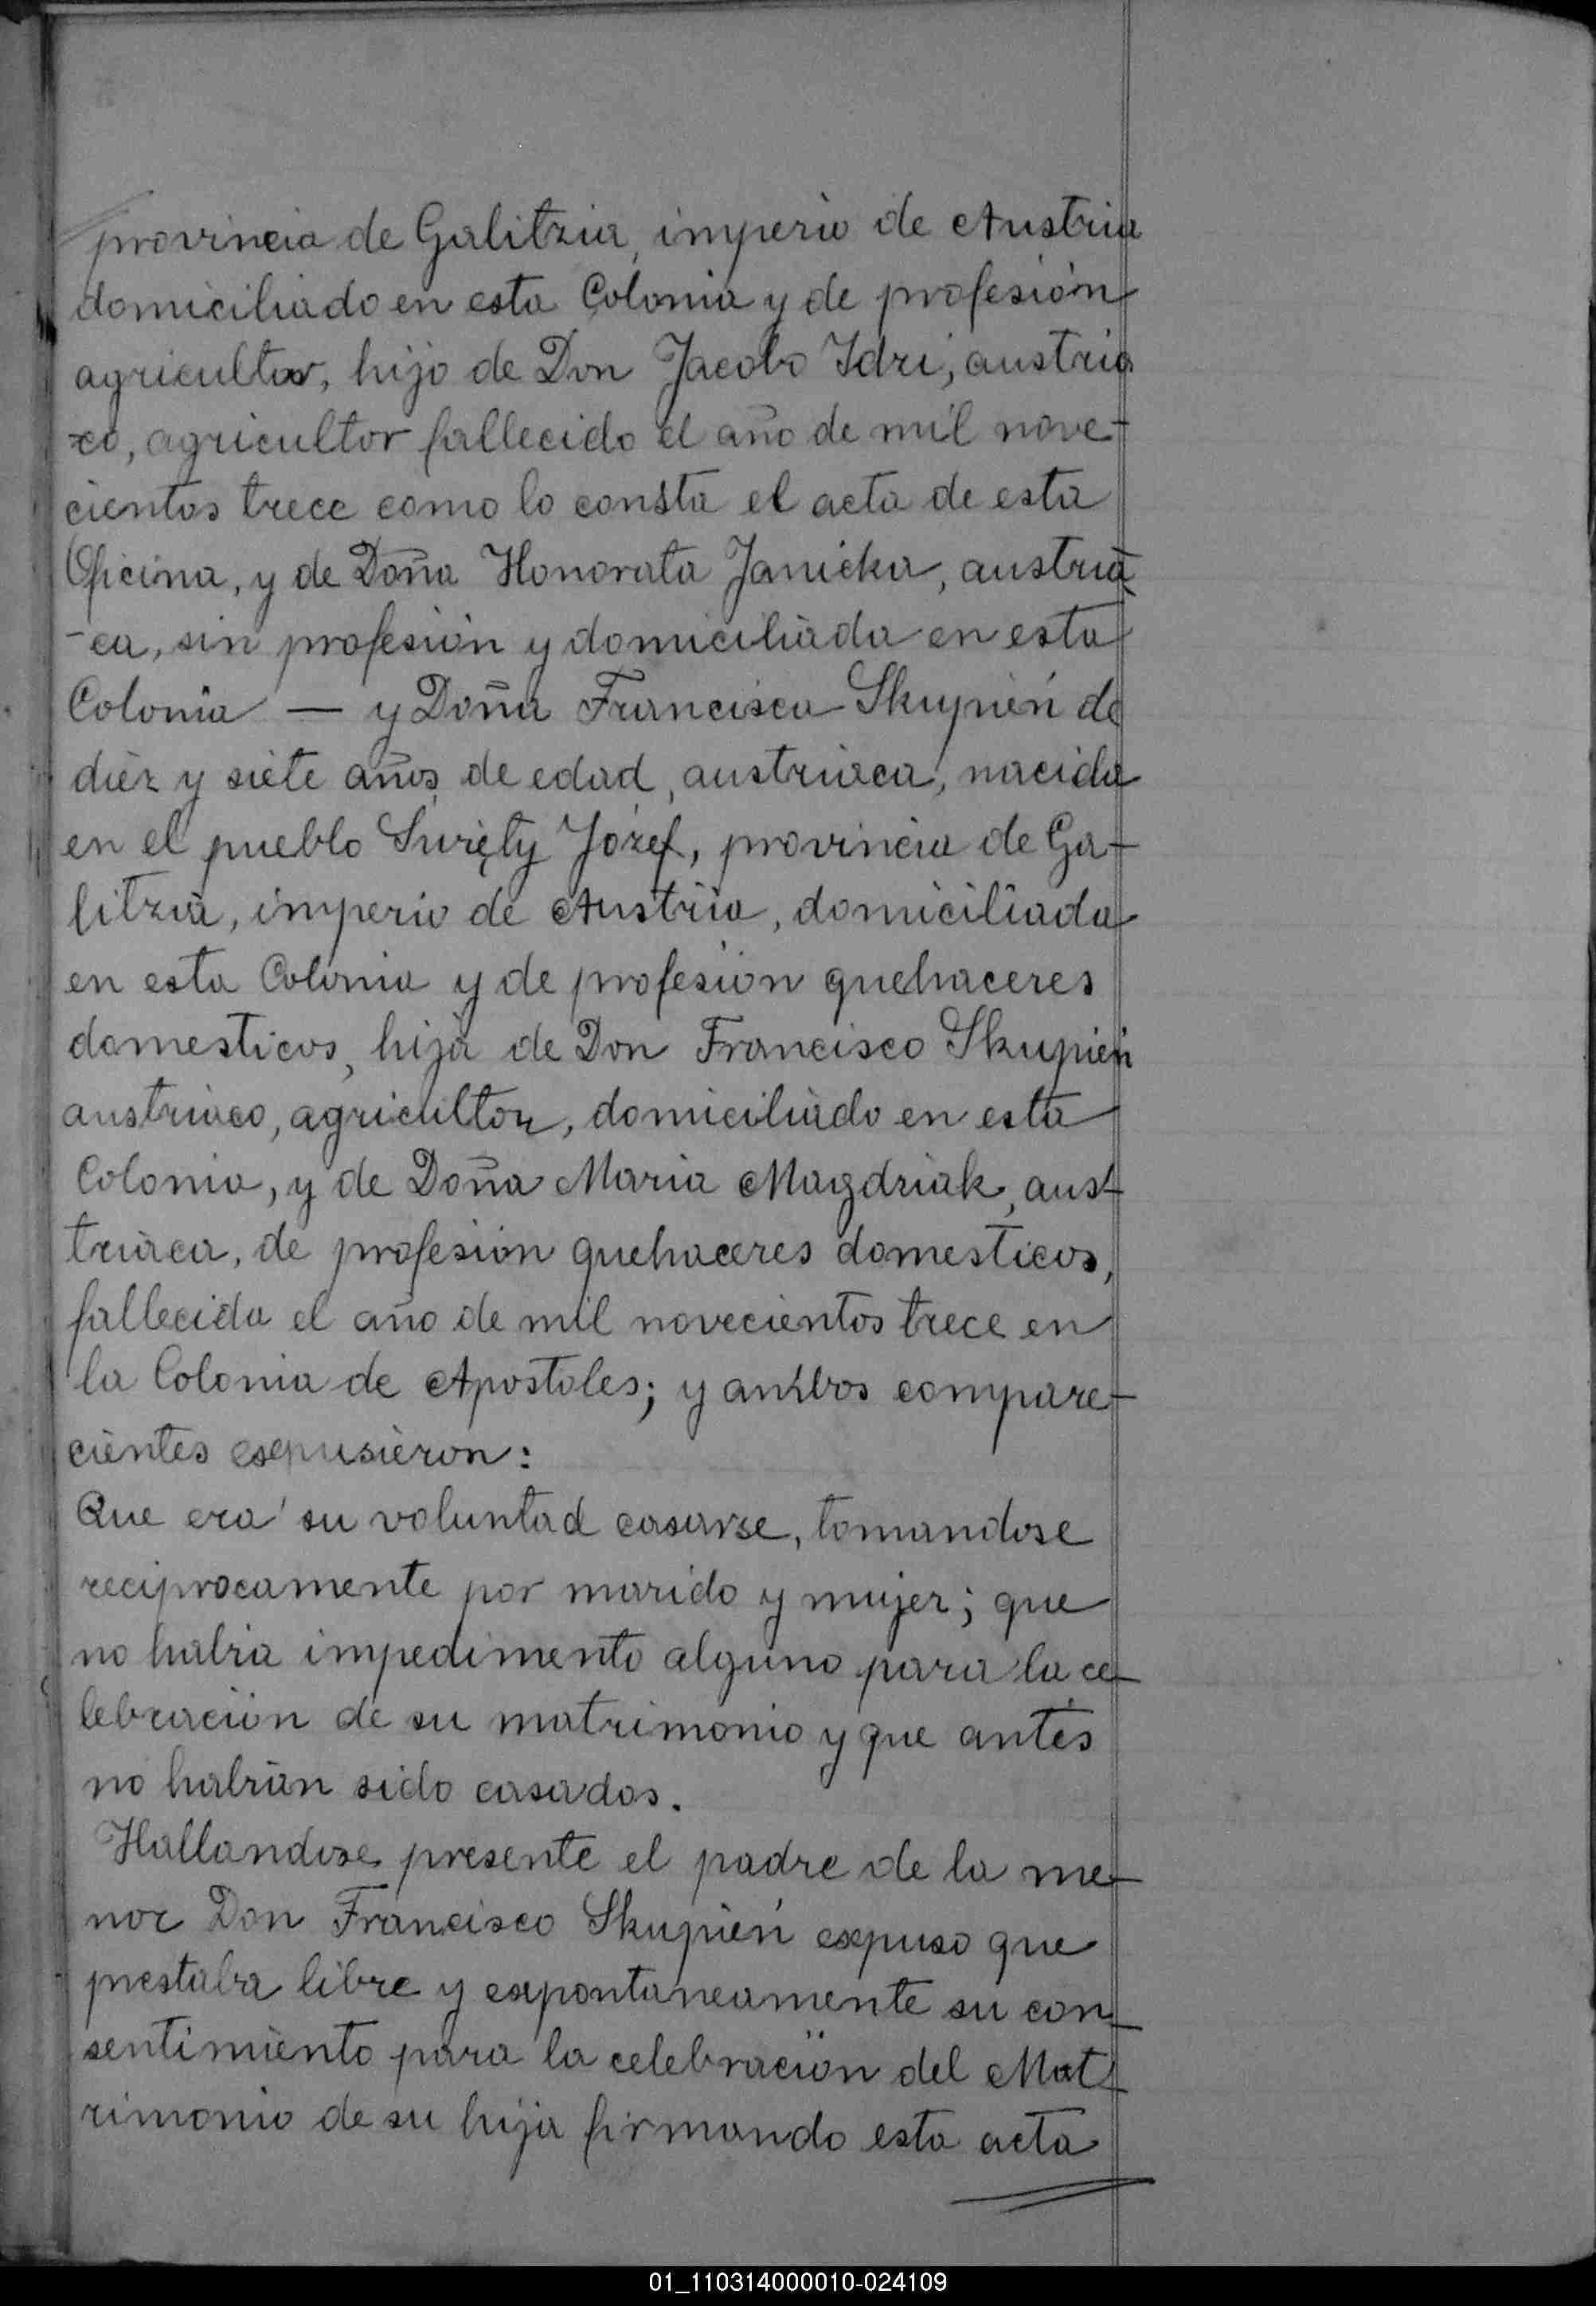 provincia de Galitzia, imperio de Austria
domiciliado en esta Colonia y de profesión
agricultor, hijo de Don Jacobo Idzi, austria
co, agricultor fallecido el año de mil nove-
cientos trece como lo consta el acta de esta
Oficina, y de Doña Honorata Janicka, austria
-ca, sin profesión y domiciliada en esta
Colonia — y Doña Francisca Skupień de
diez y siete años de edad, austriaca, nacida
en el pueblo Święty Józef, provincia de Ga-
litzia, imperio de Austria, domiciliada
en esta Colonia y de profesión quehaceres
domesticos, hija de Don Francisco Skupień
austriaco, agricultor, domiciliado en esta
Colonia, y de Doña Maria Magdziak, aus-
triaca, de profesión quehaceres domesticos,
fallecida el año de mil novecientos trece en
la Colonia de Apostoles; y ambos compare-
cientes expusieron:
Que era su voluntad casarse, tomandose
reciprocamente por marido y mujer; que
no habia impedimento alguno para la ce-
lebración de su matrimonio y que antes
no habian sido casados.
Hallandose presente el padre de la me-
nor Don Francisco Skupień expuso que
prestaba libre y expontaneamente su con-
sentimiento para la celebración del Mat-
rimonio de su hija firmando esta acta
01_110314000010-024109